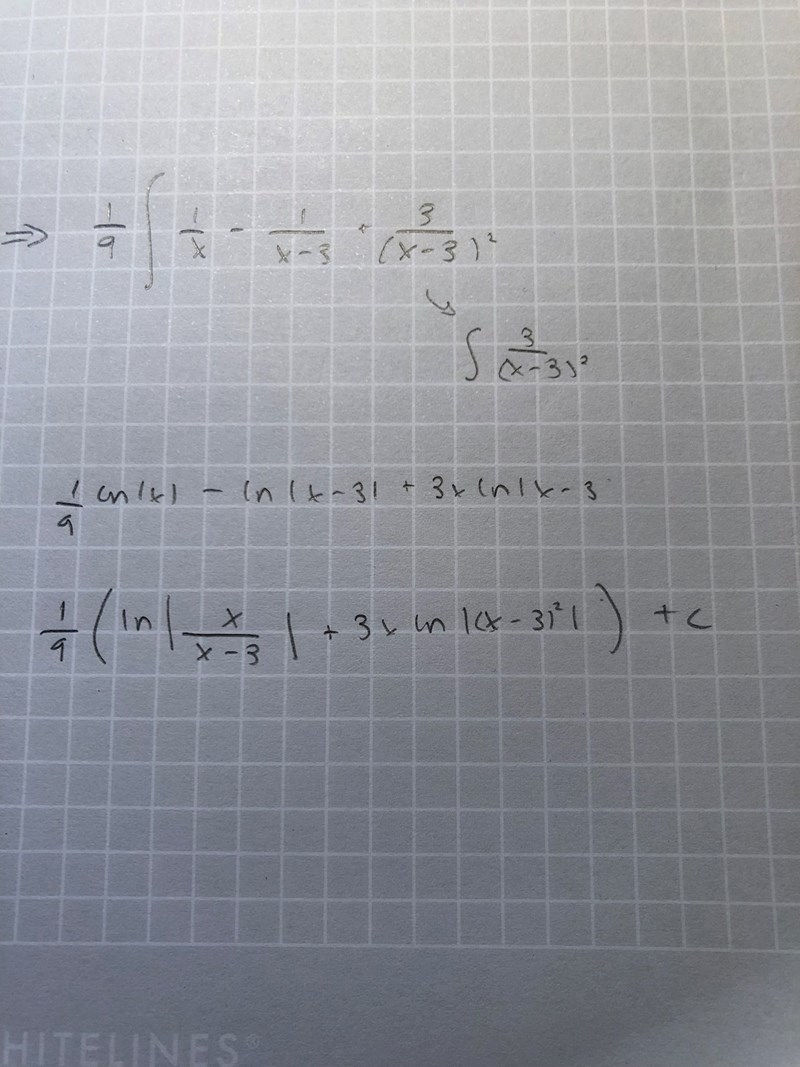 ⇒ 1/9 ∫ 1/x - 1/(x-3) + 3/(x-3)²
↘
∫ 3/(x-3)²
1/9 ln|x| - ln|x-3| + 3x ln|x-3
1/9 (ln|x/(x-3)| + 3x ln|(x-3)²|) + c
HITELINES®